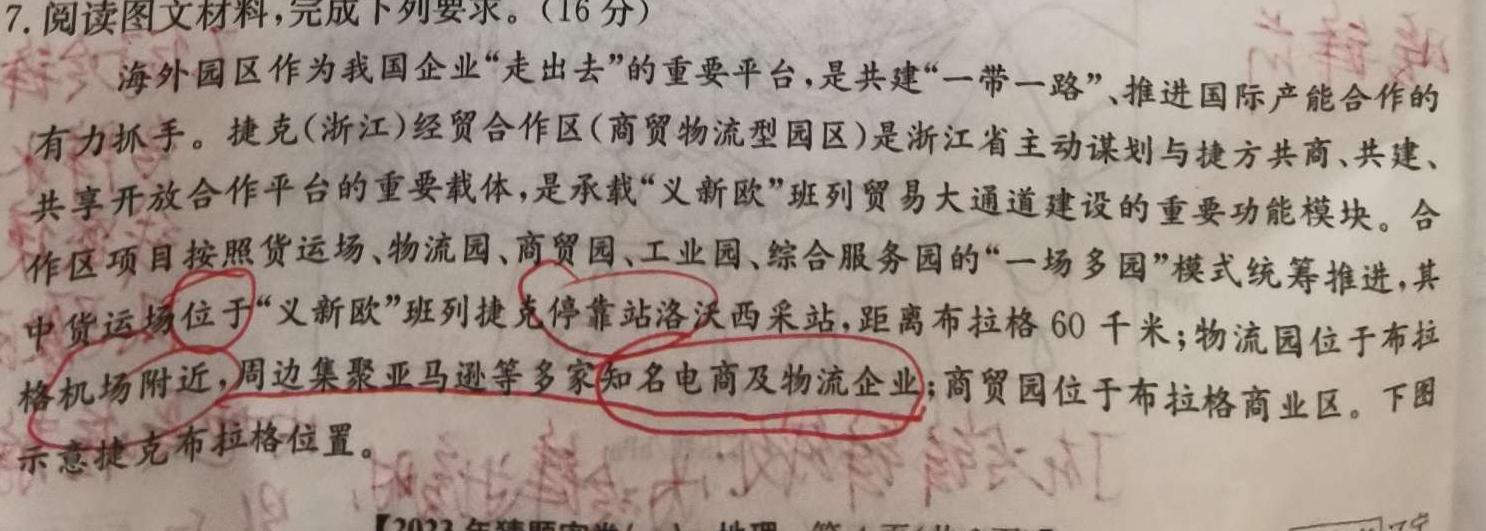 7. 阅读图文材料,完成下列要求。(16 分)
海外园区作为我国企业“走出去”的重要平台,是共建“一带一路”、推进国际产能合作的
有力抓手。捷克(浙江)经贸合作区(商贸物流型园区)是浙江省主动谋划与捷方共商、共建、
共享开放合作平台的重要载体,是承载“义新欧”班列贸易大通道建设的重要功能模块。合
作区项目按照货运场、物流园、商贸园、工业园、综合服务园的“一场多园”模式统筹推进,其
中货运场位于“义新欧”班列捷克停靠站洛沃西采站,距离布拉格 60 千米;物流园位于布拉
格机场附近,周边集聚亚马逊等多家知名电商及物流企业;商贸园位于布拉格商业区。下图
示意捷克布拉格位置。